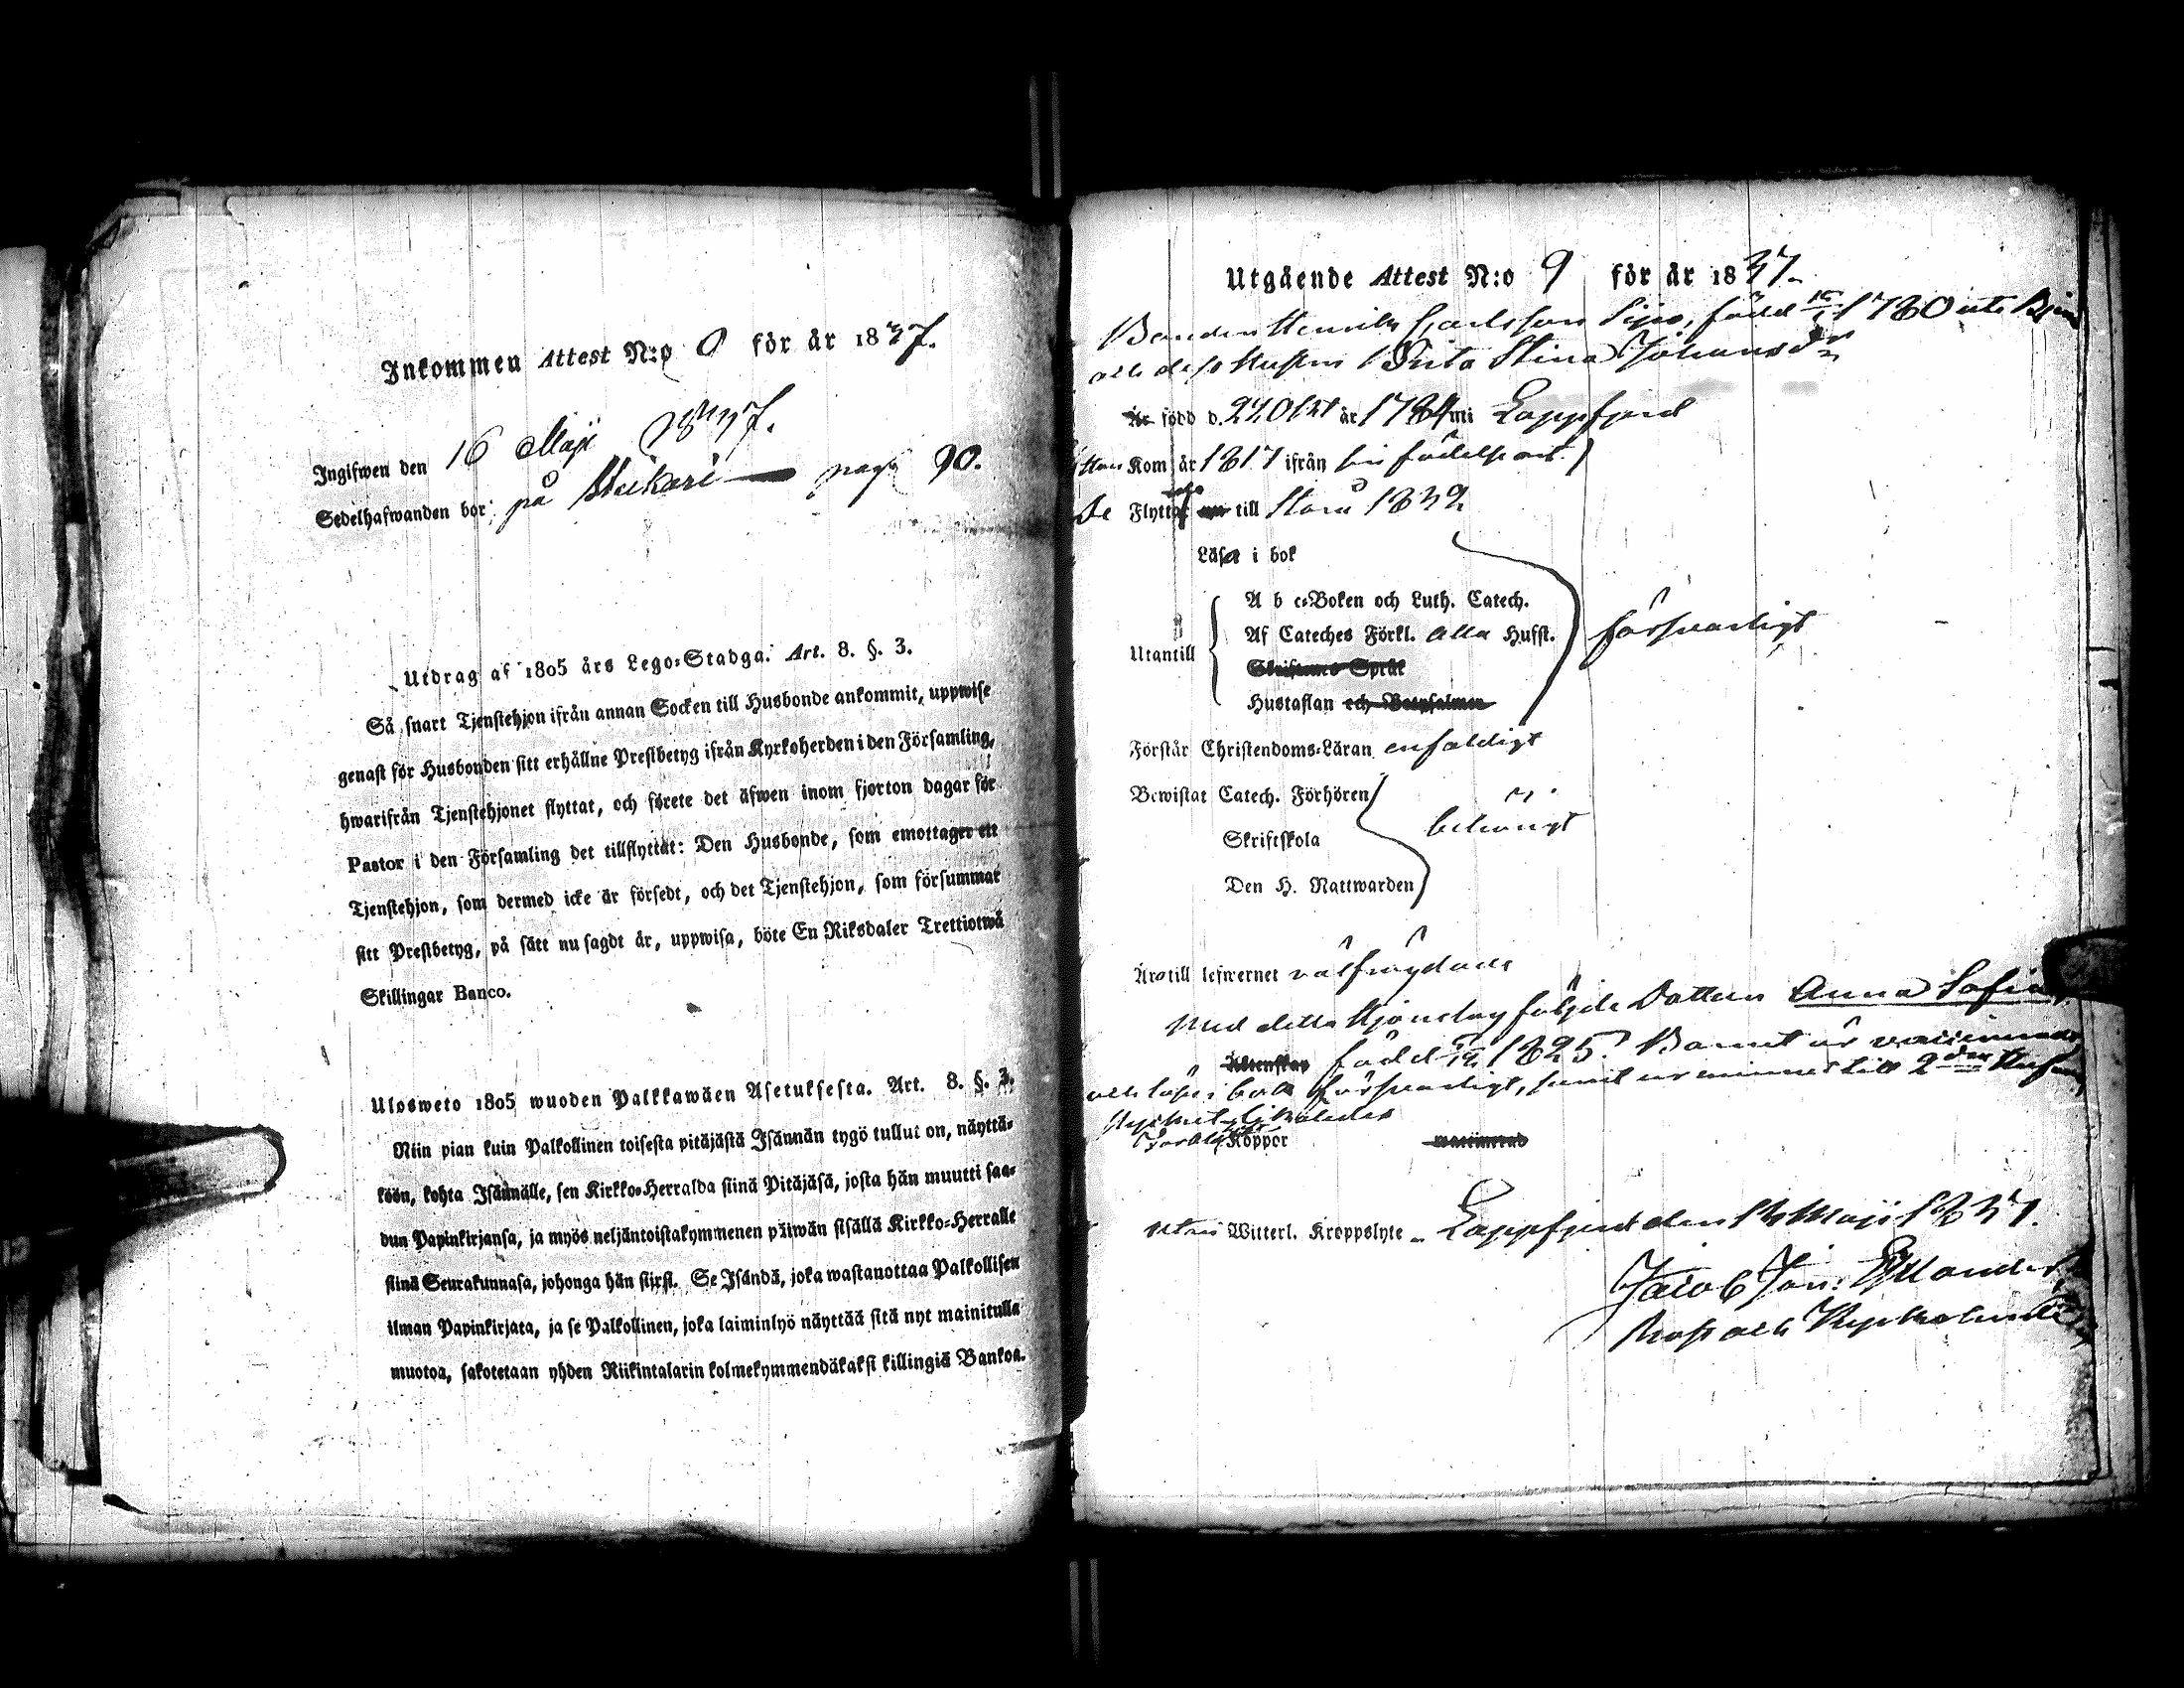 Inkommen Attest N:o 0 för år 1837.
Ingifwen den 16 Maji 1837.
Sedelhafwanden bor på pag 90.
Utdrag af 1805 års Lego-Stadga. Art. 8. §. 3.
Så snart Tjenstehjon ifrån annan Socken till Husbonde ankommit, uppwise
genast för Husbonden sitt erhållne Prestbetyg ifrån Kyrkoherden i den Församling,
hwarifrån Tjenstehjonet flyttat, och förete det äfwen inom fjorton dagar för
Pastor i den Församling det tillflyttat: Den Husbonde, som emottager ett
Tjenstehjon, som dermed icke är försedt, och det Tjenstehjon, som försummar
sitt Prestbetyg, på sätt nu sagdt är, uppwisa, böte En Riksdaler Trettiotwå
Skillingar Banco.
Ulosweto 1805 wuoden Palkkawäen Asetuksesta. Art. 8. §. 3.
Niin pian kuin Palkollinen toisesta pitäjästä Isännän tygö tullut on, näyttä-
köön, kohta Isännälle, sen Kirkko-Herralda siinä Pitäjäsä, josta hän muutti saa-
dun Papinkirjansa, ja myös neljäntoistakymmenen päiwän sisällä Kirkko-Herralle
siinä Seurakunnasa, johonga hän siirst. Se Isändä, joka wastanottaa Palkollisen
ilman Papinkirjata, ja se Palkollinen, joka laiminlyö näyttää sitä nyt mainitulla
muotoa, sakotetaan yhden Riikintalarin kolmekymmendäkaksi killingiä Bankoa.
Utgående Attest N:o 9 för år 1837.
Bonden Henrik Carlsson Sipo, född 1780 uti
och dess Hustru Brita Stina Johansdr
Är född d. 22 Oct år 1784 uti Lappfjerd
Kom år 1817 ifrån sin födelseort)
De Flytta till Storå 1832
Läsa i bok
A b c-Boken och Luth. Catech.
Af Cateches Förkl. alla Hufst.
Utantill
försvarligt
Skriftenes Språk
Hustaflan och Botpsalmen
Förstår Christendoms-Läran enfaldigt
Bewistat Catech. Förhören
behörigt
Skriftskola
Den H. Nattwarden
Äro till lefwernet välfrägdade
Med detta Hjonelag följde Dottren Anna Sofia
Äktenskap född 1825. Barnet är vaccinerad
och läser i bok försvarligt, samt ur minnet till 2dra
Koppor vaccinerad
utan Witterl. Kroppslyte. Lappfjerd den 14 Maji 1837.
Jacob Joh: